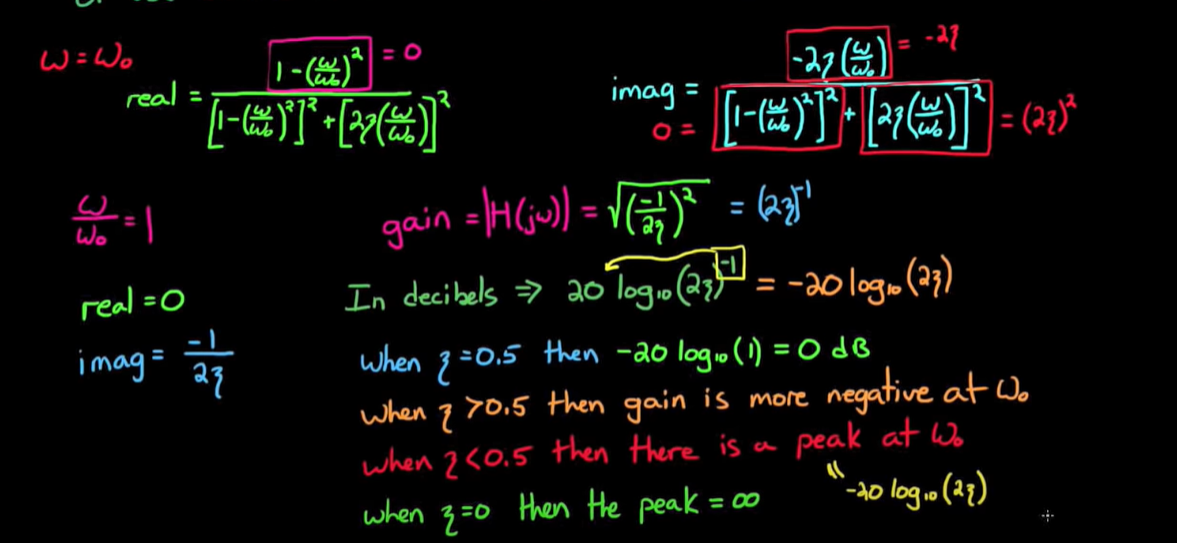 ω = ω₀
real = 1-(ω/ω₀)² = 0 / [1-(ω/ω₀)²]² + [2ζ(ω/ω₀)]²
imag = -2ζ(ω/ω₀) = -2ζ / [1-(ω/ω₀)²]² + [2ζ(ω/ω₀)]² = (2ζ)²
0 =
ω/ω₀ = 1
gain = |H(jω)| = √(-1/2ζ)² = (2ζ)⁻¹
real = 0
In decibels ⇒ 20 log₁₀(2ζ)⁻¹ = -20 log₁₀(2ζ)
imag = -1/2ζ
when ζ = 0.5 then -20 log₁₀(1) = 0 dB
when ζ > 0.5 then gain is more negative at ω₀
when ζ < 0.5 then there is a peak at ω₀
" -20 log₁₀(2ζ)
when ζ = 0 then the peak = ∞